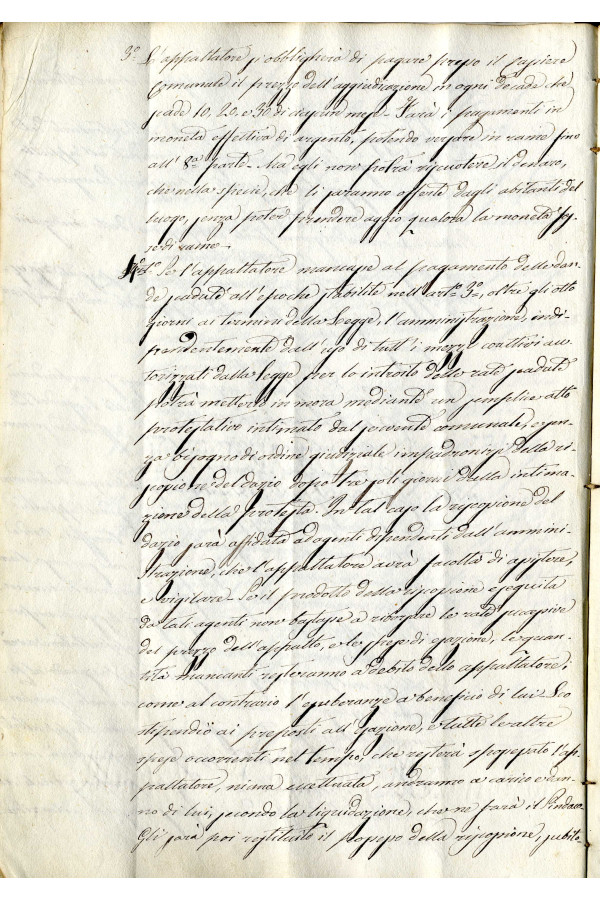 3.° L'appaltatore si obbligherà di pagare presso il Cassiere
Comunale il prezzo dell'aggiudicazione in ogni decade che
scade 10, 20, e 30 di ciascun mese. Farà i pagamenti in
moneta effettiva di argento, potendo versare in rame fino
all' 8.ª parte. Ma egli non potrà riscuotere il denaro,
che nella specie, che li saranno offerte dagli abitanti del
luogo, senza poter prendere aggio qualora la moneta fos-
se di rame.
4.° Se l'appaltatore mancasse al pagamento delle
de scadute all'epoche stabilite nell'art.° 3.°, oltre gli otto
giorni ai termini della Legge, l'amministrazione, indi-
pendentemente dall'uso di tutt'i mezzi coattivi au-
torizzati dalla legge per lo introito delle rate scadute
potrà metterlo in mora mediante un semplice atto
protestativo intimato dal servente comunale, e sen-
za bisogno di ordine giudiziale impadronirsi della ri-
scossione del dazio dopo tra soli giorni della intima-
zione della protesta. In tal caso la riscossione del
dazio sarà affidata ad agenti dipendenti dall'ammini-
strazione, che l'appaltatore avrà facoltà di assistere,
e vigilare. Se il prodotto della riscossione eseguita
da tali agenti non bastasse a coprire le rate successive
del prezzo dell'appalto, e le spese di esazione, le quan-
tità mancanti resteranno a debito dello appaltatore,
come al contrario l'esuberanze a beneficio di lui. Lo
stipendio ai preposti all'esazione, e tutte le altre
spese occorrenti nel tempo, che resterà spossessato l'ap-
paltatore, niuna eccettuata, andranno a carico e dan-
no di lui, secondo la liquidazione, che ne farà il Sindaco.
Gli sarà poi restituito il possesso della riscossione, subito